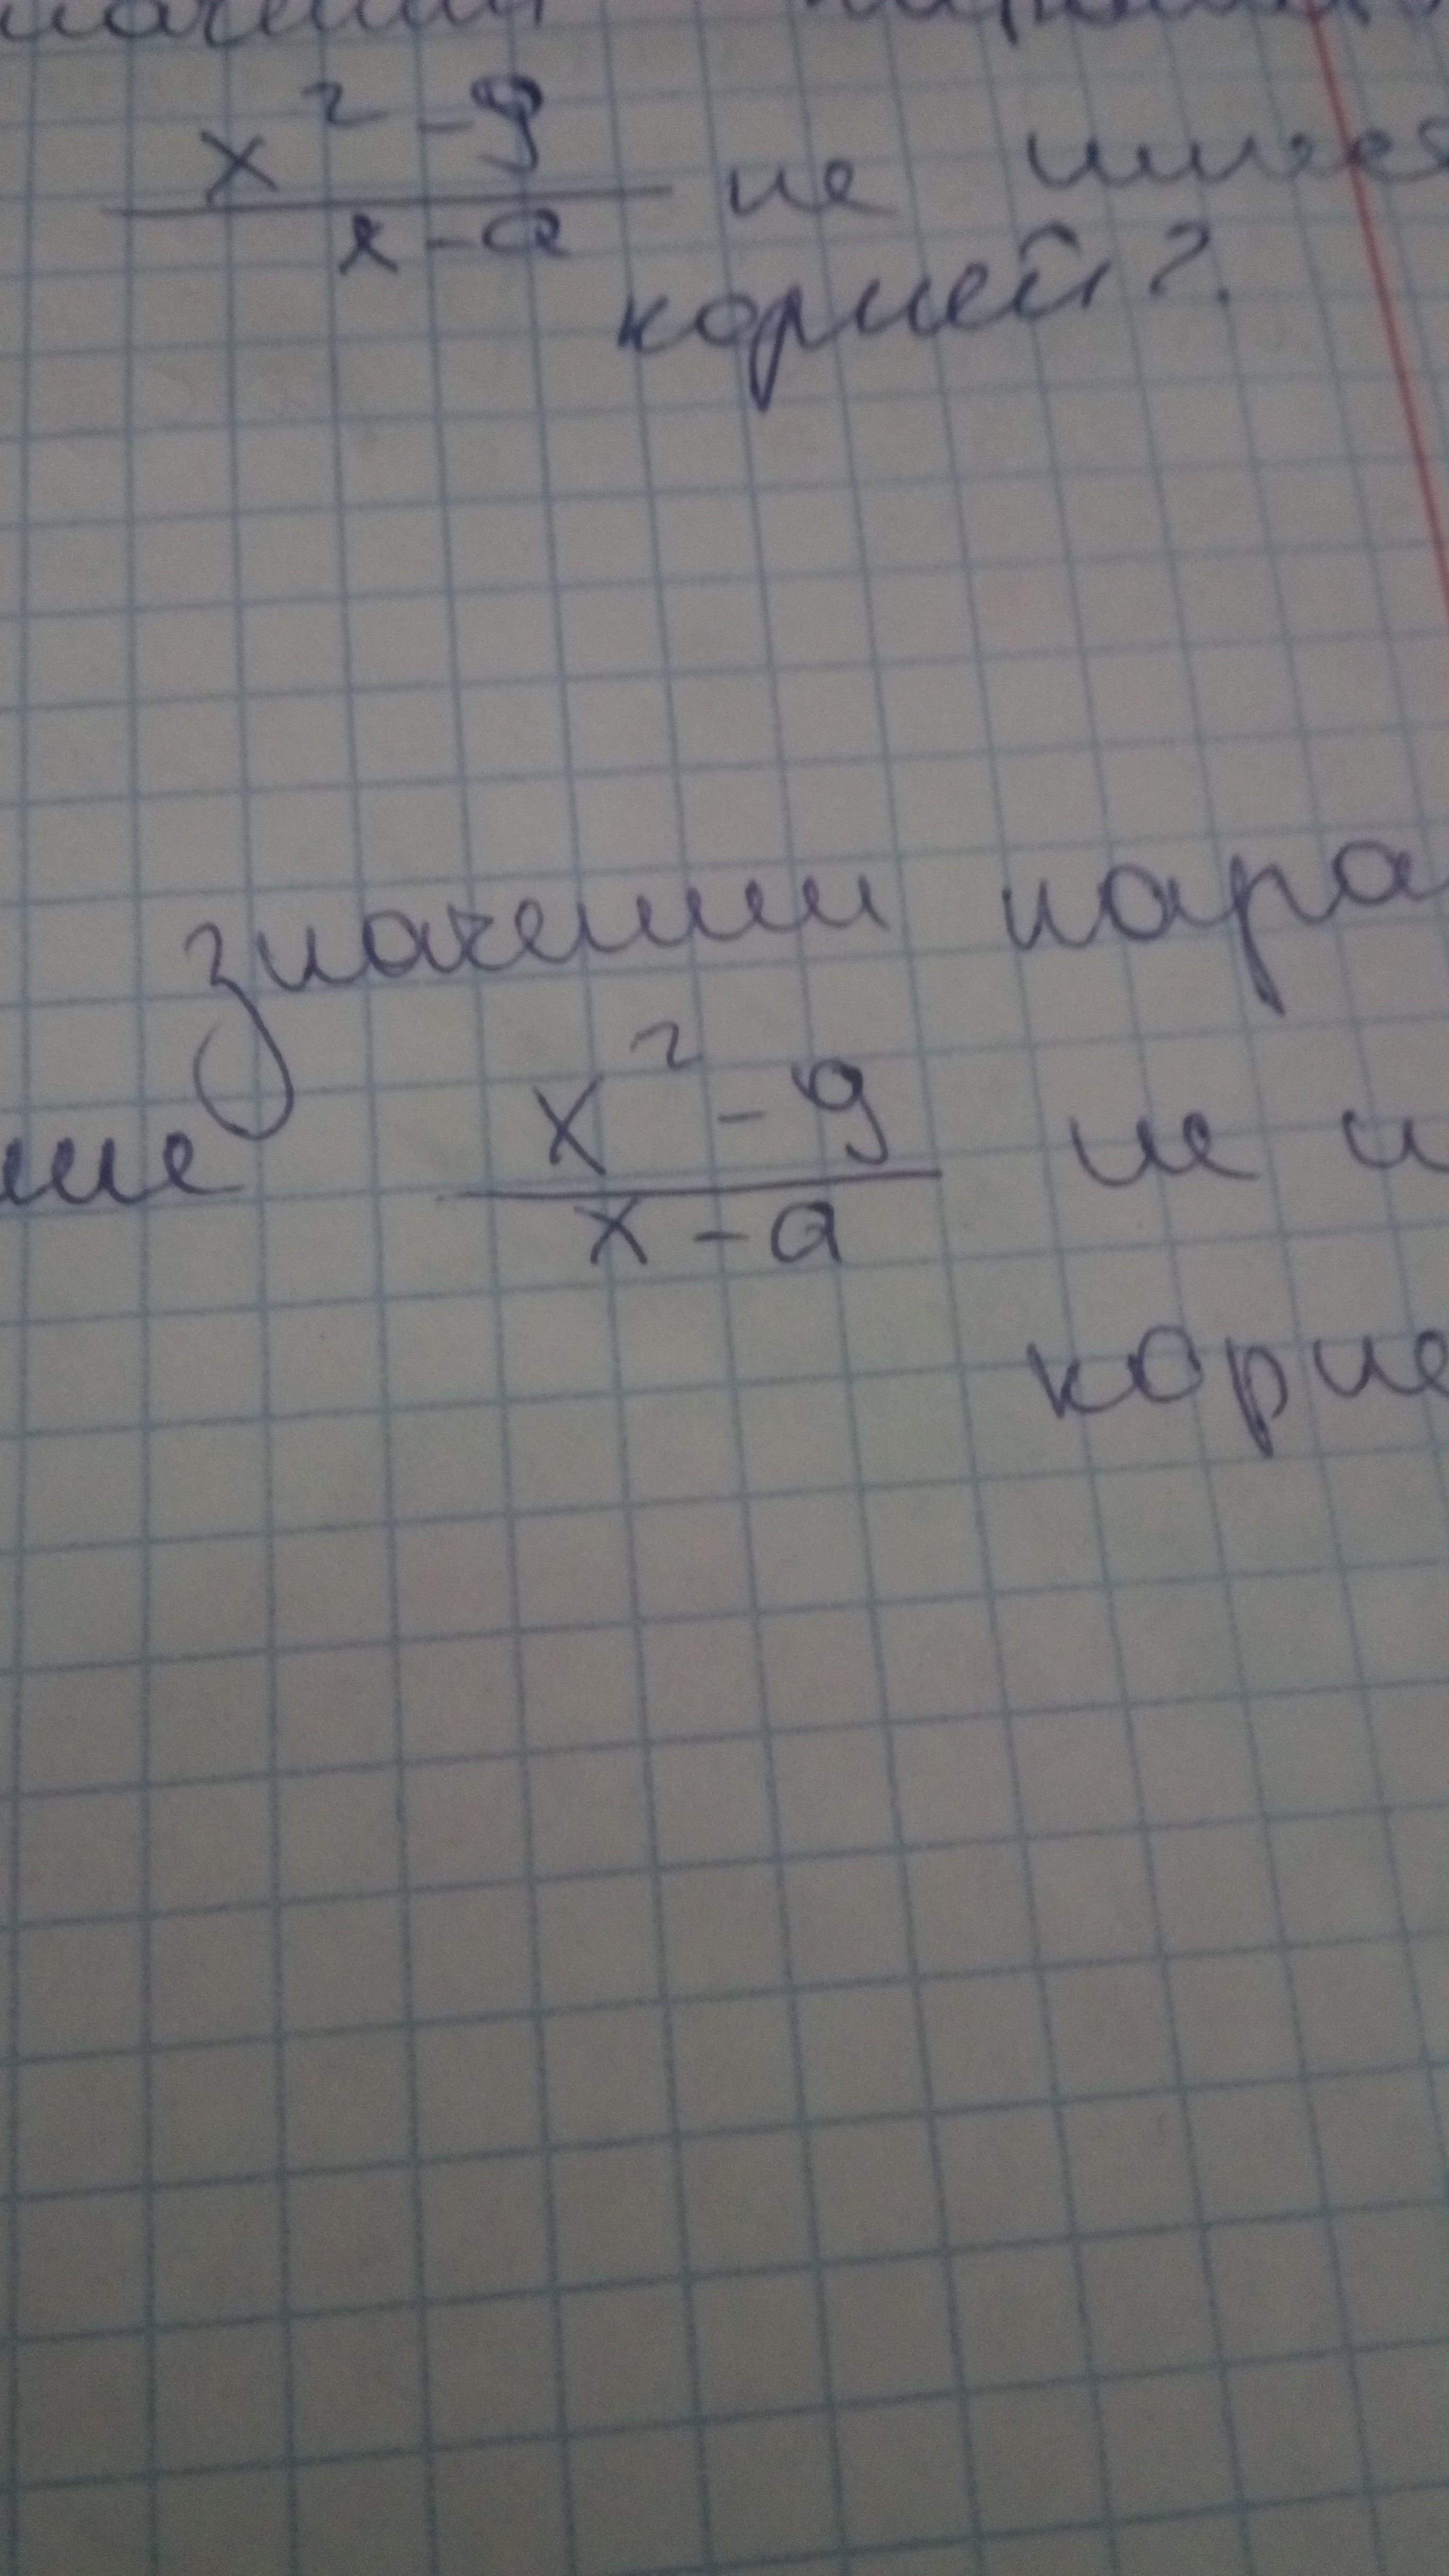 x² - 9
x - a
не имеет
корней?
значении пара
ние
x² - 9
x - a
не и
корне